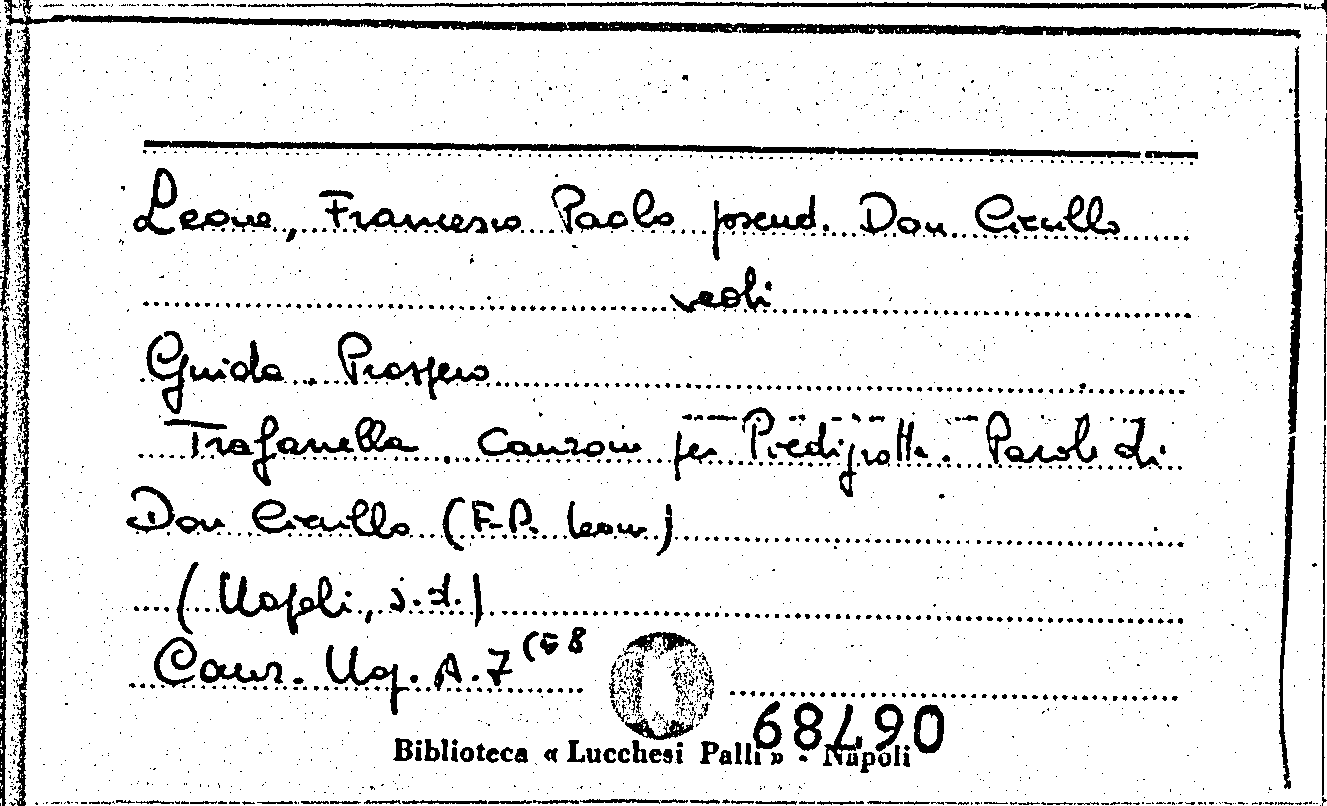 Leone, Francesco Paolo pseud. Don Cirillo
vedi
Guida Prospero
Trafanella. Canzone per Piedigrotta. Parole di
Don Cirillo (F.P. Leone)
(Napoli, s.d.)
Canz. Nap. A.7 (68
68790
Biblioteca « Lucchesi Palli » - Napoli